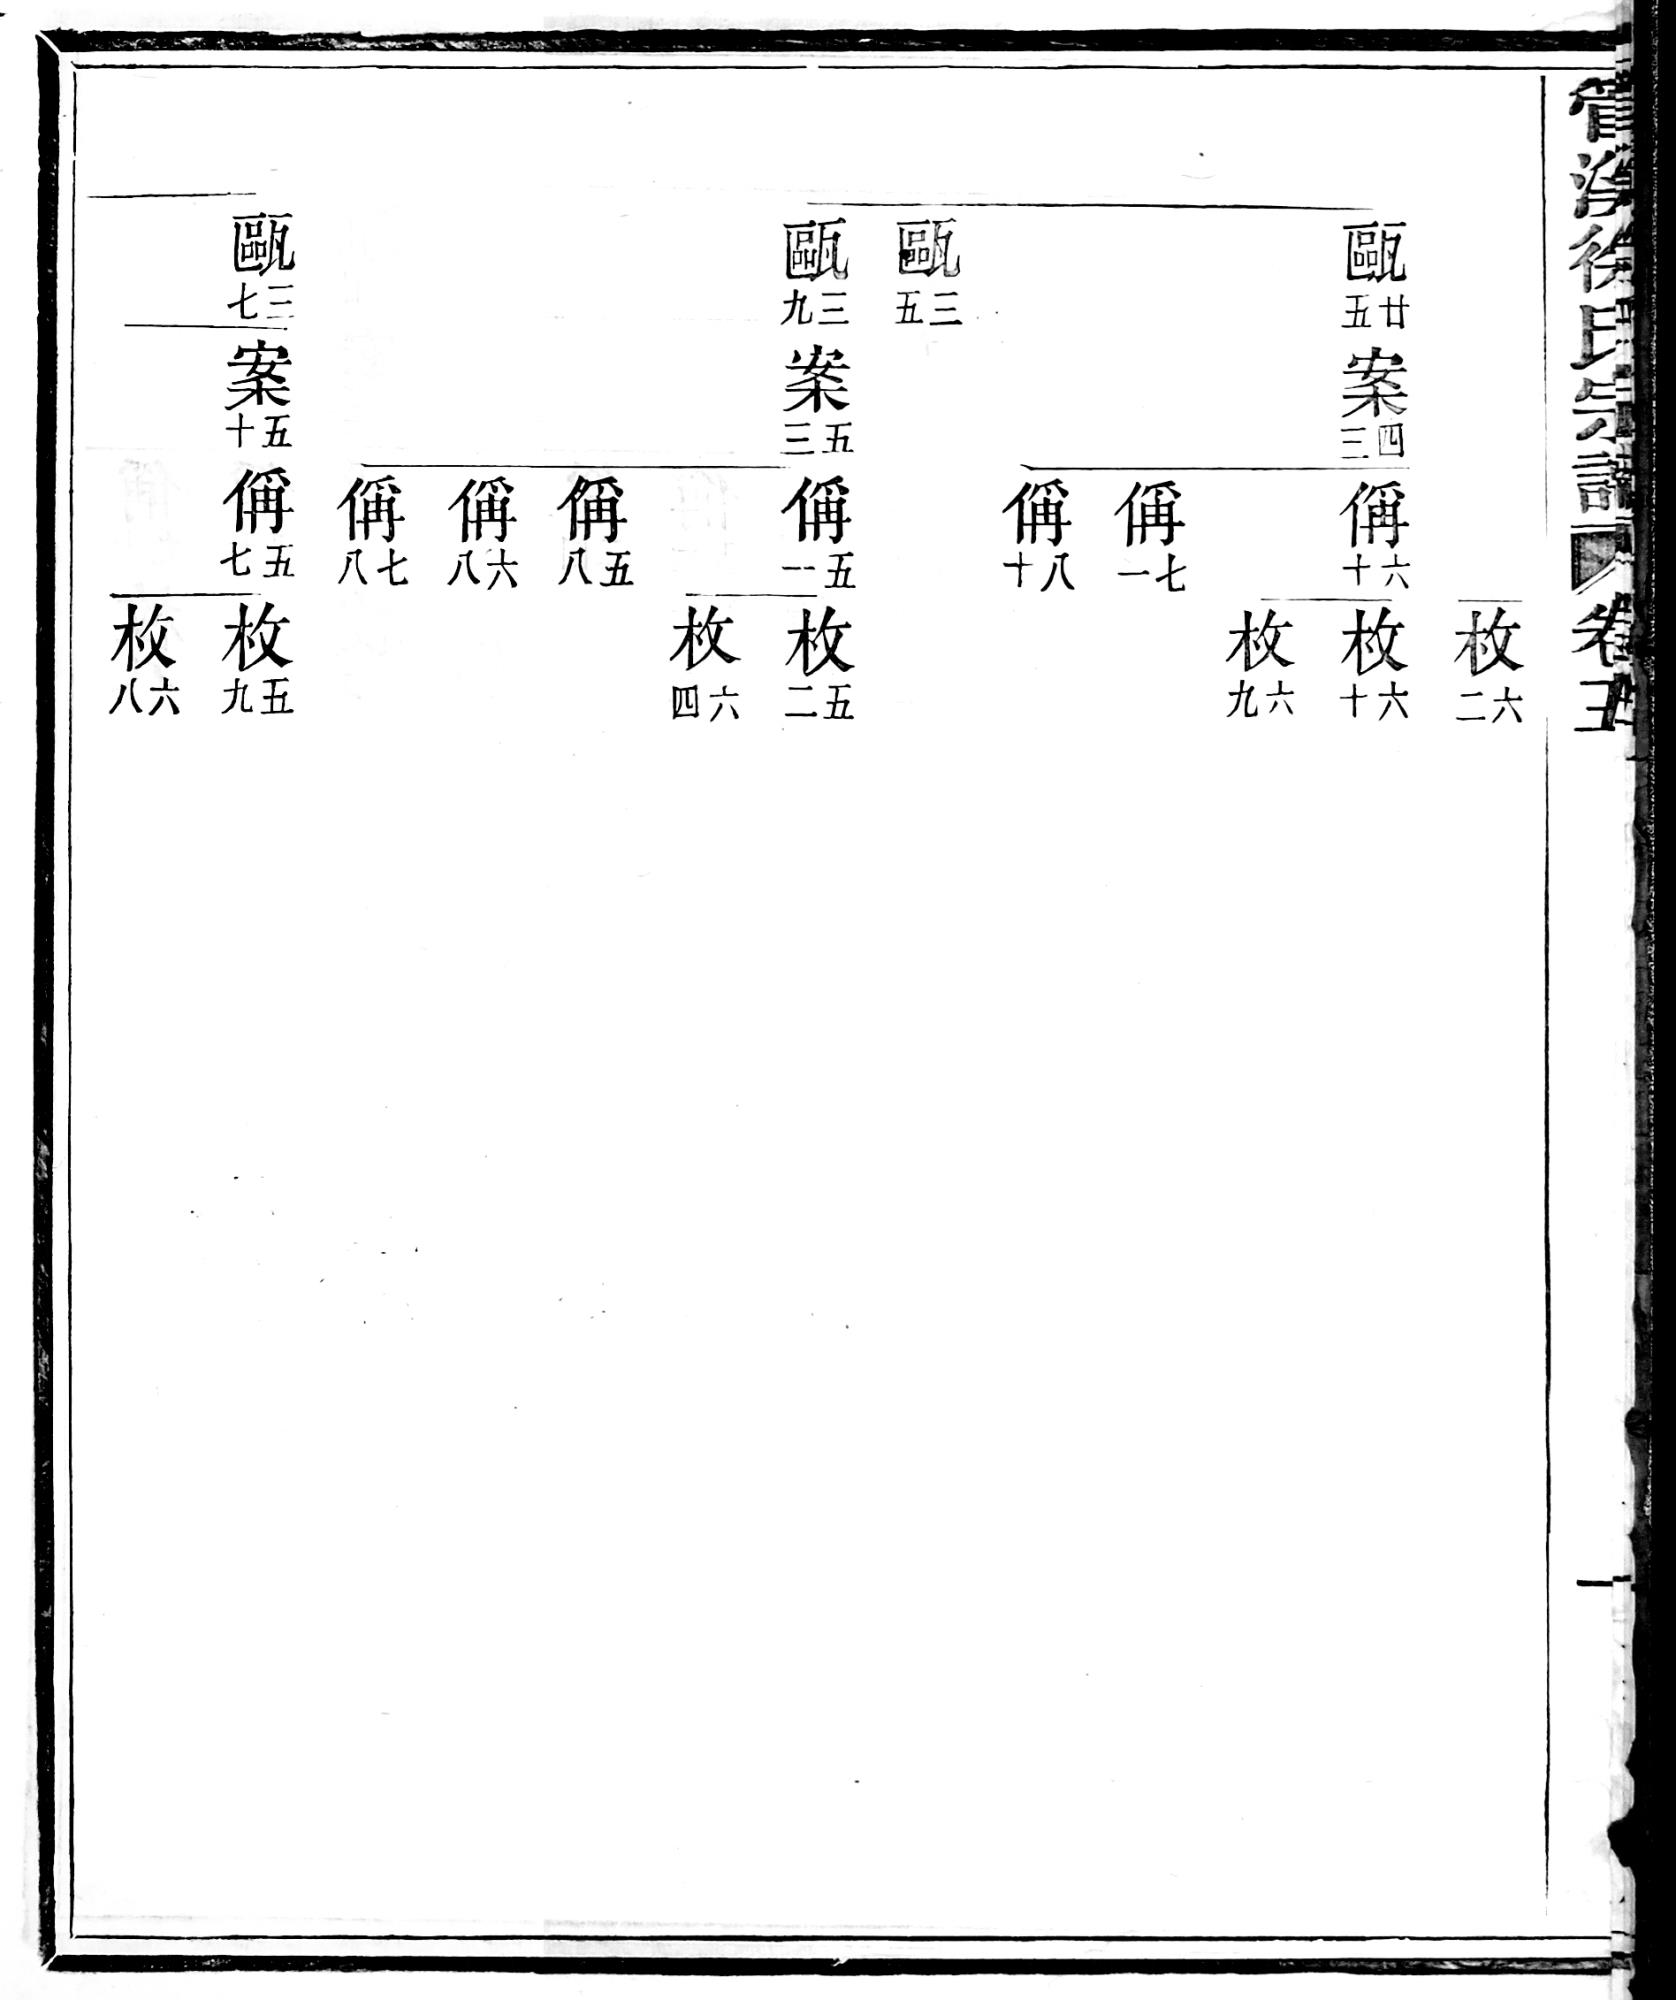 管溪徐氏宗譜 卷五 一
枚六二
甌廿五 案四三 偁六十 枚六十
枚六九
偁七一
偁八十
甌三五
甌三九 案五三 偁五一 枚五二
枚六四
偁五八
偁六八
偁七八
甌三七 案五十 偁五七 枚五九
枚六八